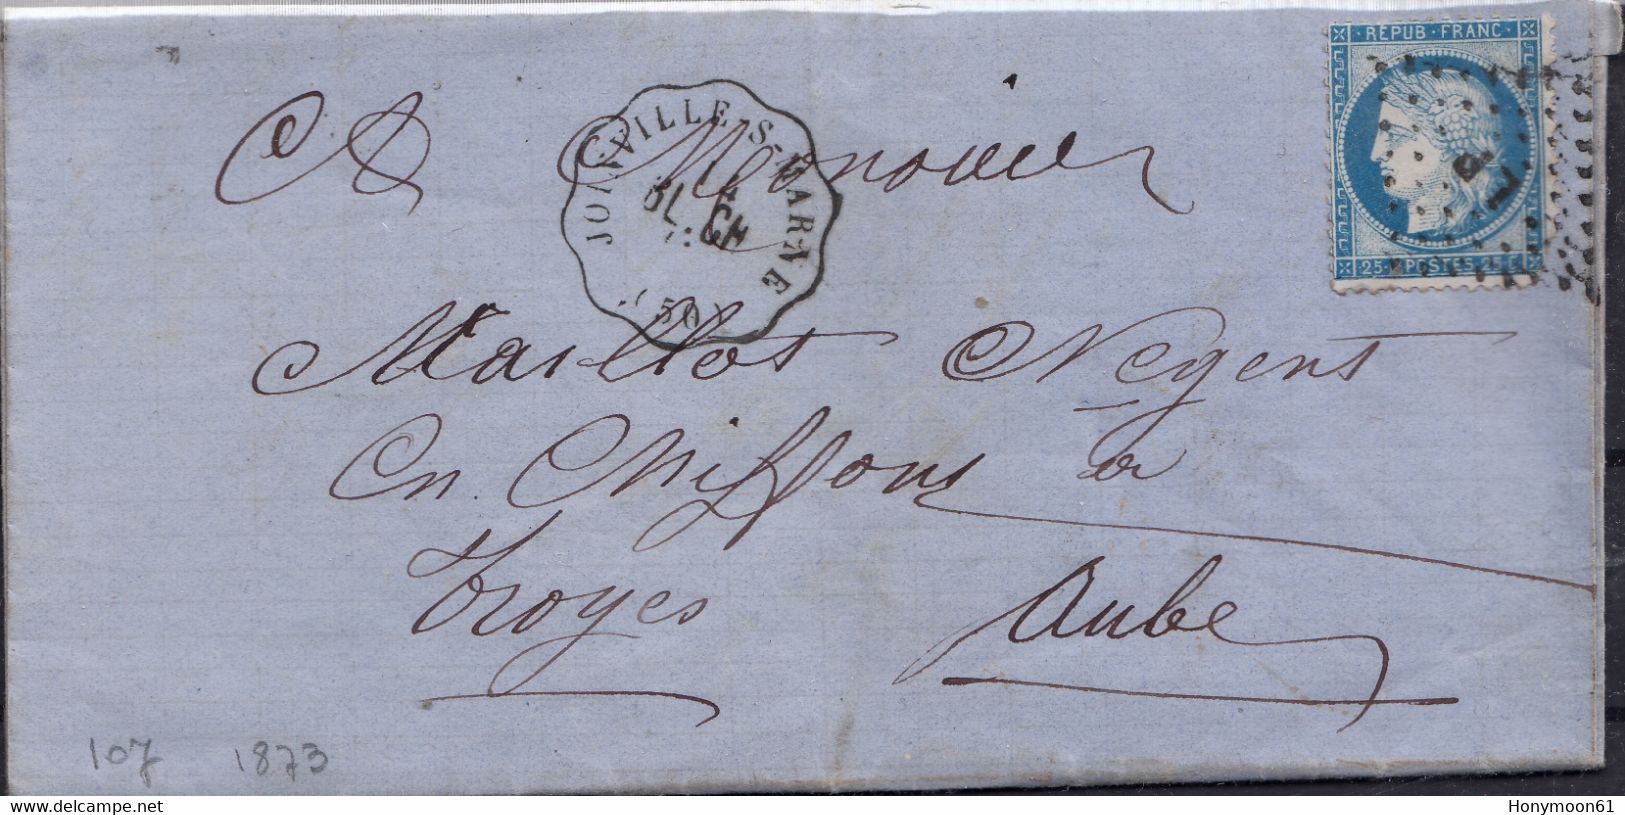 REPUB · FRANC
25 · POSTES · 25
JOINVILLE-S-MARNE
BL. CH
(50)
A Monsieur
Maillot Négent
En Chiffons à
Troyes Aube
107 1873
www.delcampe.net
Honymoon61